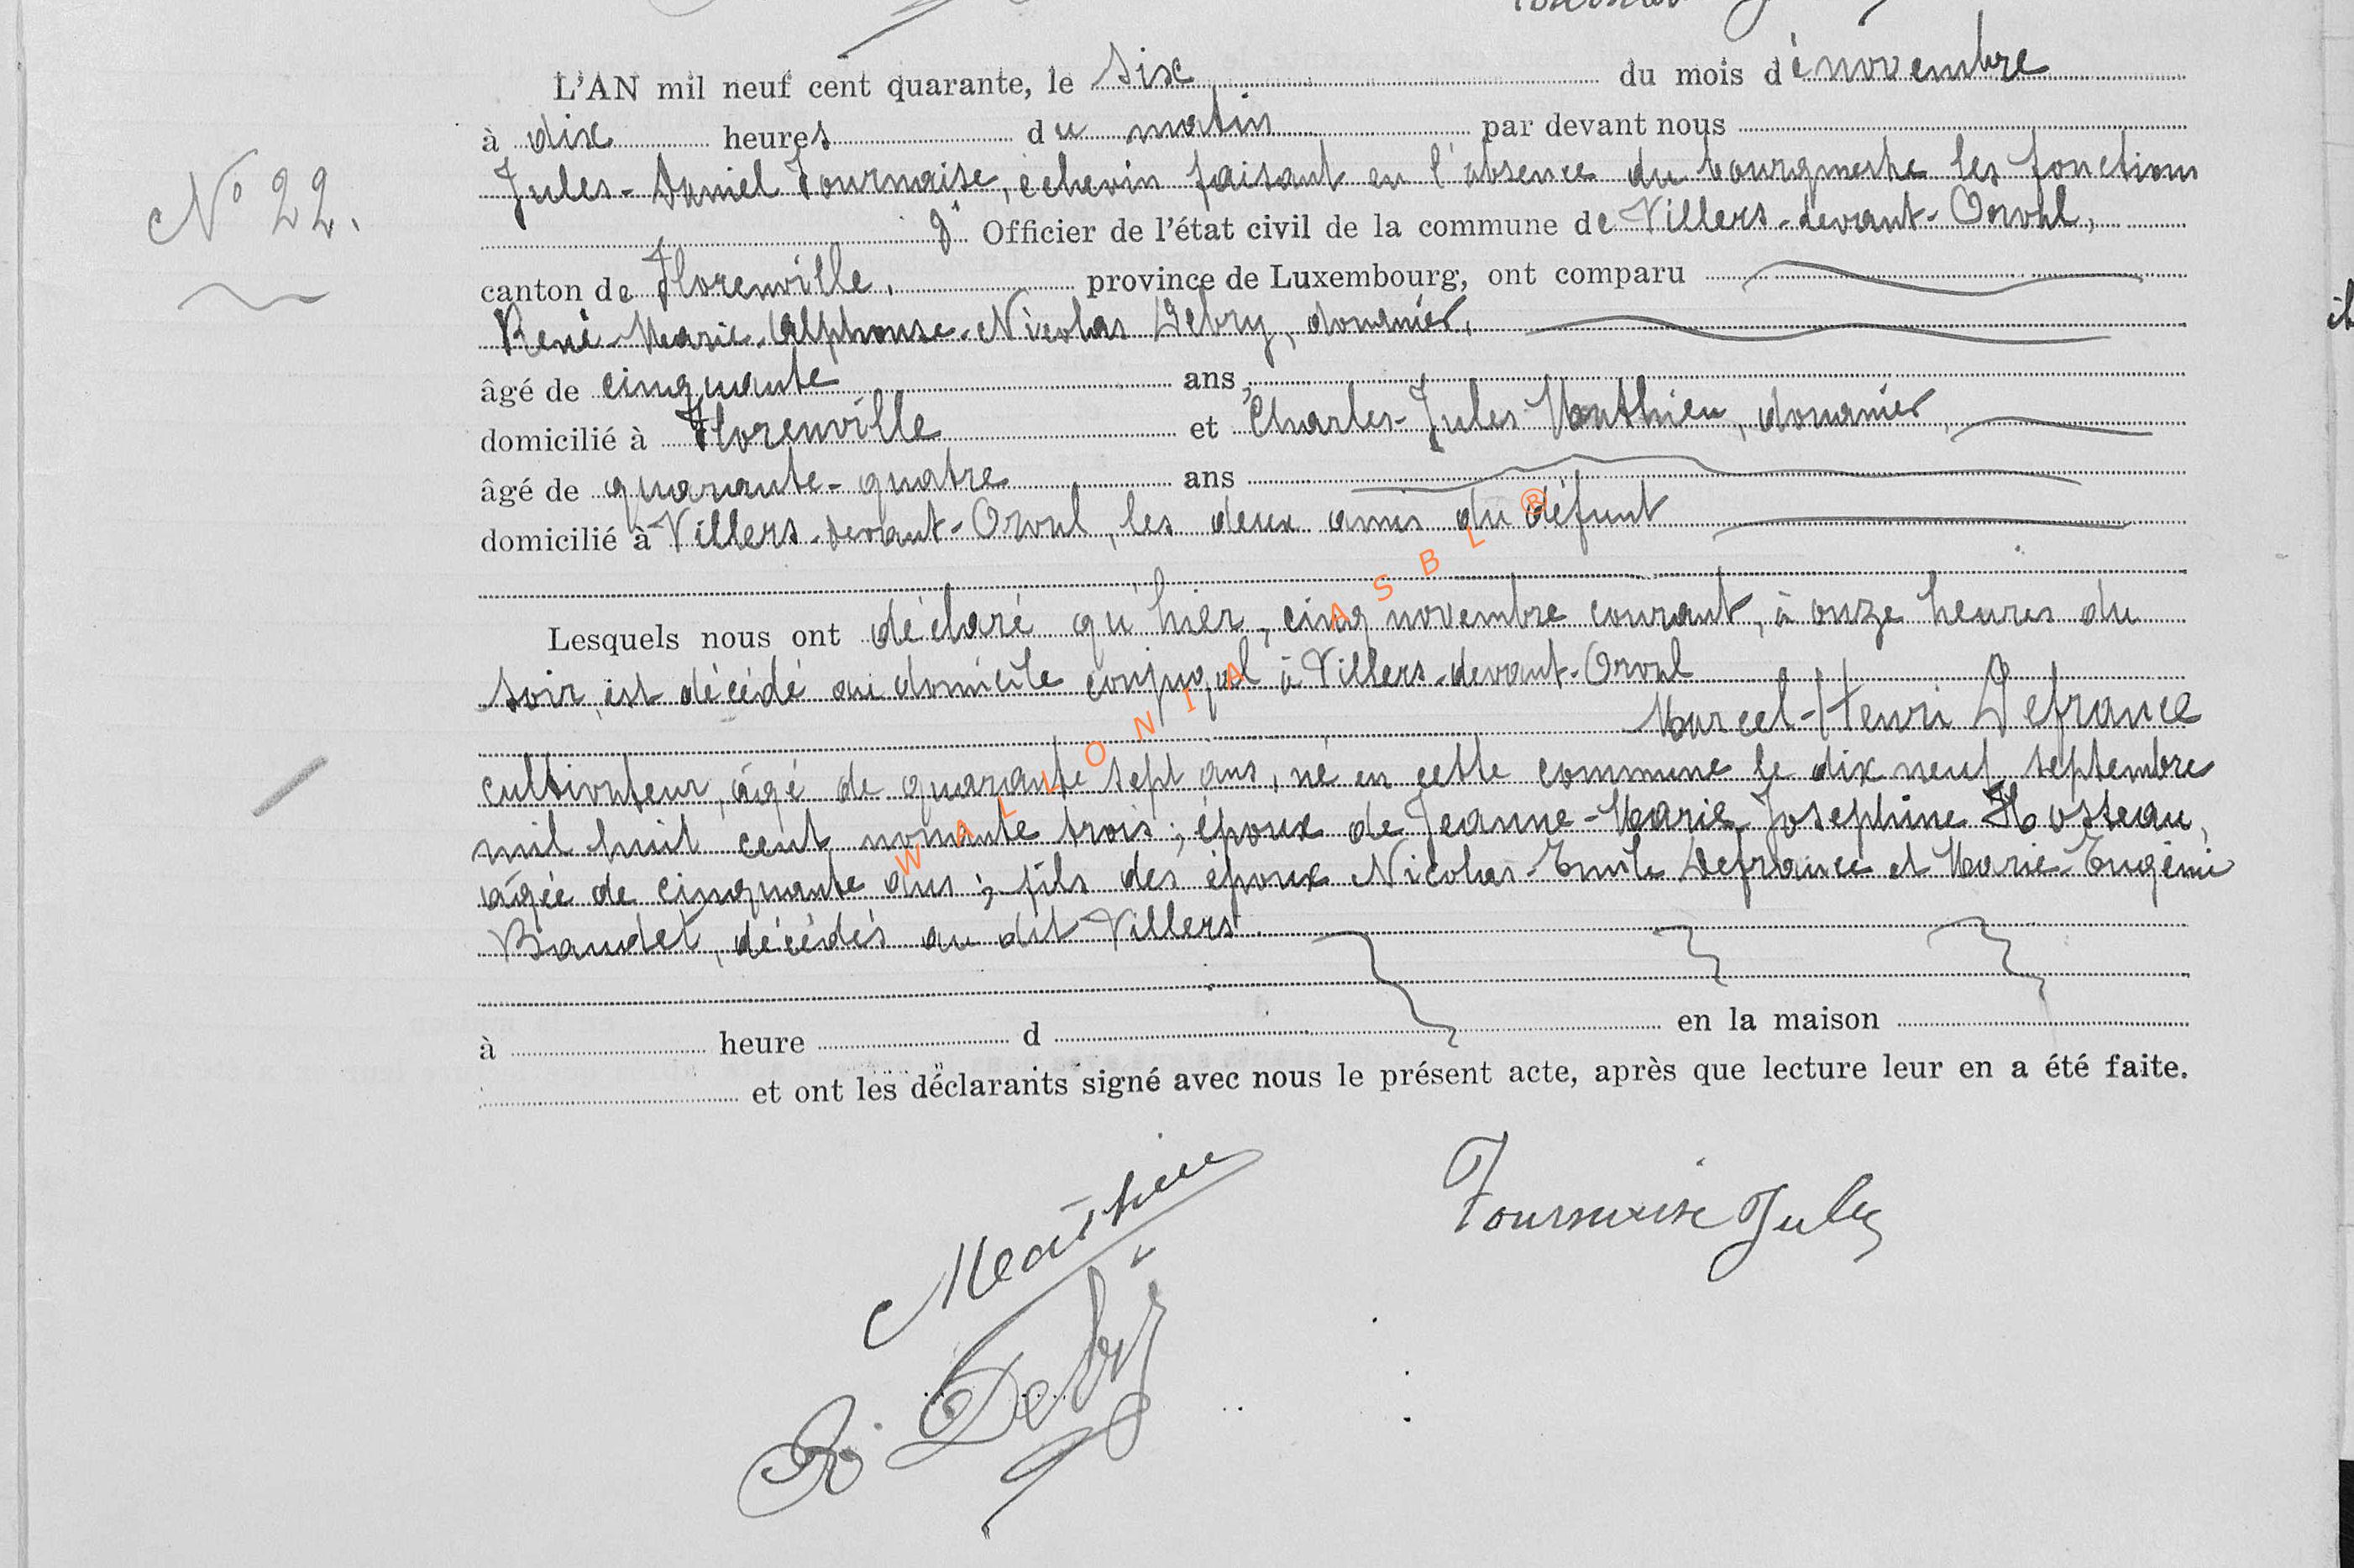 L'AN mil neuf cent quarante, le six du mois de novembre
à dix heures du matin par devant nous
N° 22.
Jules-Daniel Tournaise, échevin faisant en l'absence du bourgmestre les fonctions
d' Officier de l'état civil de la commune de Villers-devant-Orval,
canton de Florenville, province de Luxembourg, ont comparu
René-Marie-Alphonse-Nicolas Debry, douanier,
âgé de cinquante ans,
domicilié à Florenville et Charles-Jules Mathieu, douanier,
âgé de quarante-quatre ans
domicilié à Villers-devant-Orval, les deux amis du défunt
Lesquels nous ont déclaré qu'hier, cinq novembre courant, à onze heures du
soir, est décédé au domicile conjugal à Villers-devant-Orval
Marcel-Henri Defrance
cultivateur, âgé de quarante sept ans, né en cette commune le dix neuf septembre
mil huit cent nonante trois; époux de Jeanne-Marie Josephine Hosteau,
âgée de cinquante ans; fils des époux Nicolas-Emile Defrance et Marie-Eugénie
Baudet, décédés au dit Villers.
à heure d en la maison
et ont les déclarants signé avec nous le présent acte, après que lecture leur en a été faite.
Mathieu
Tournaise Jules
R. Debry
WALLONIA ASBL ®